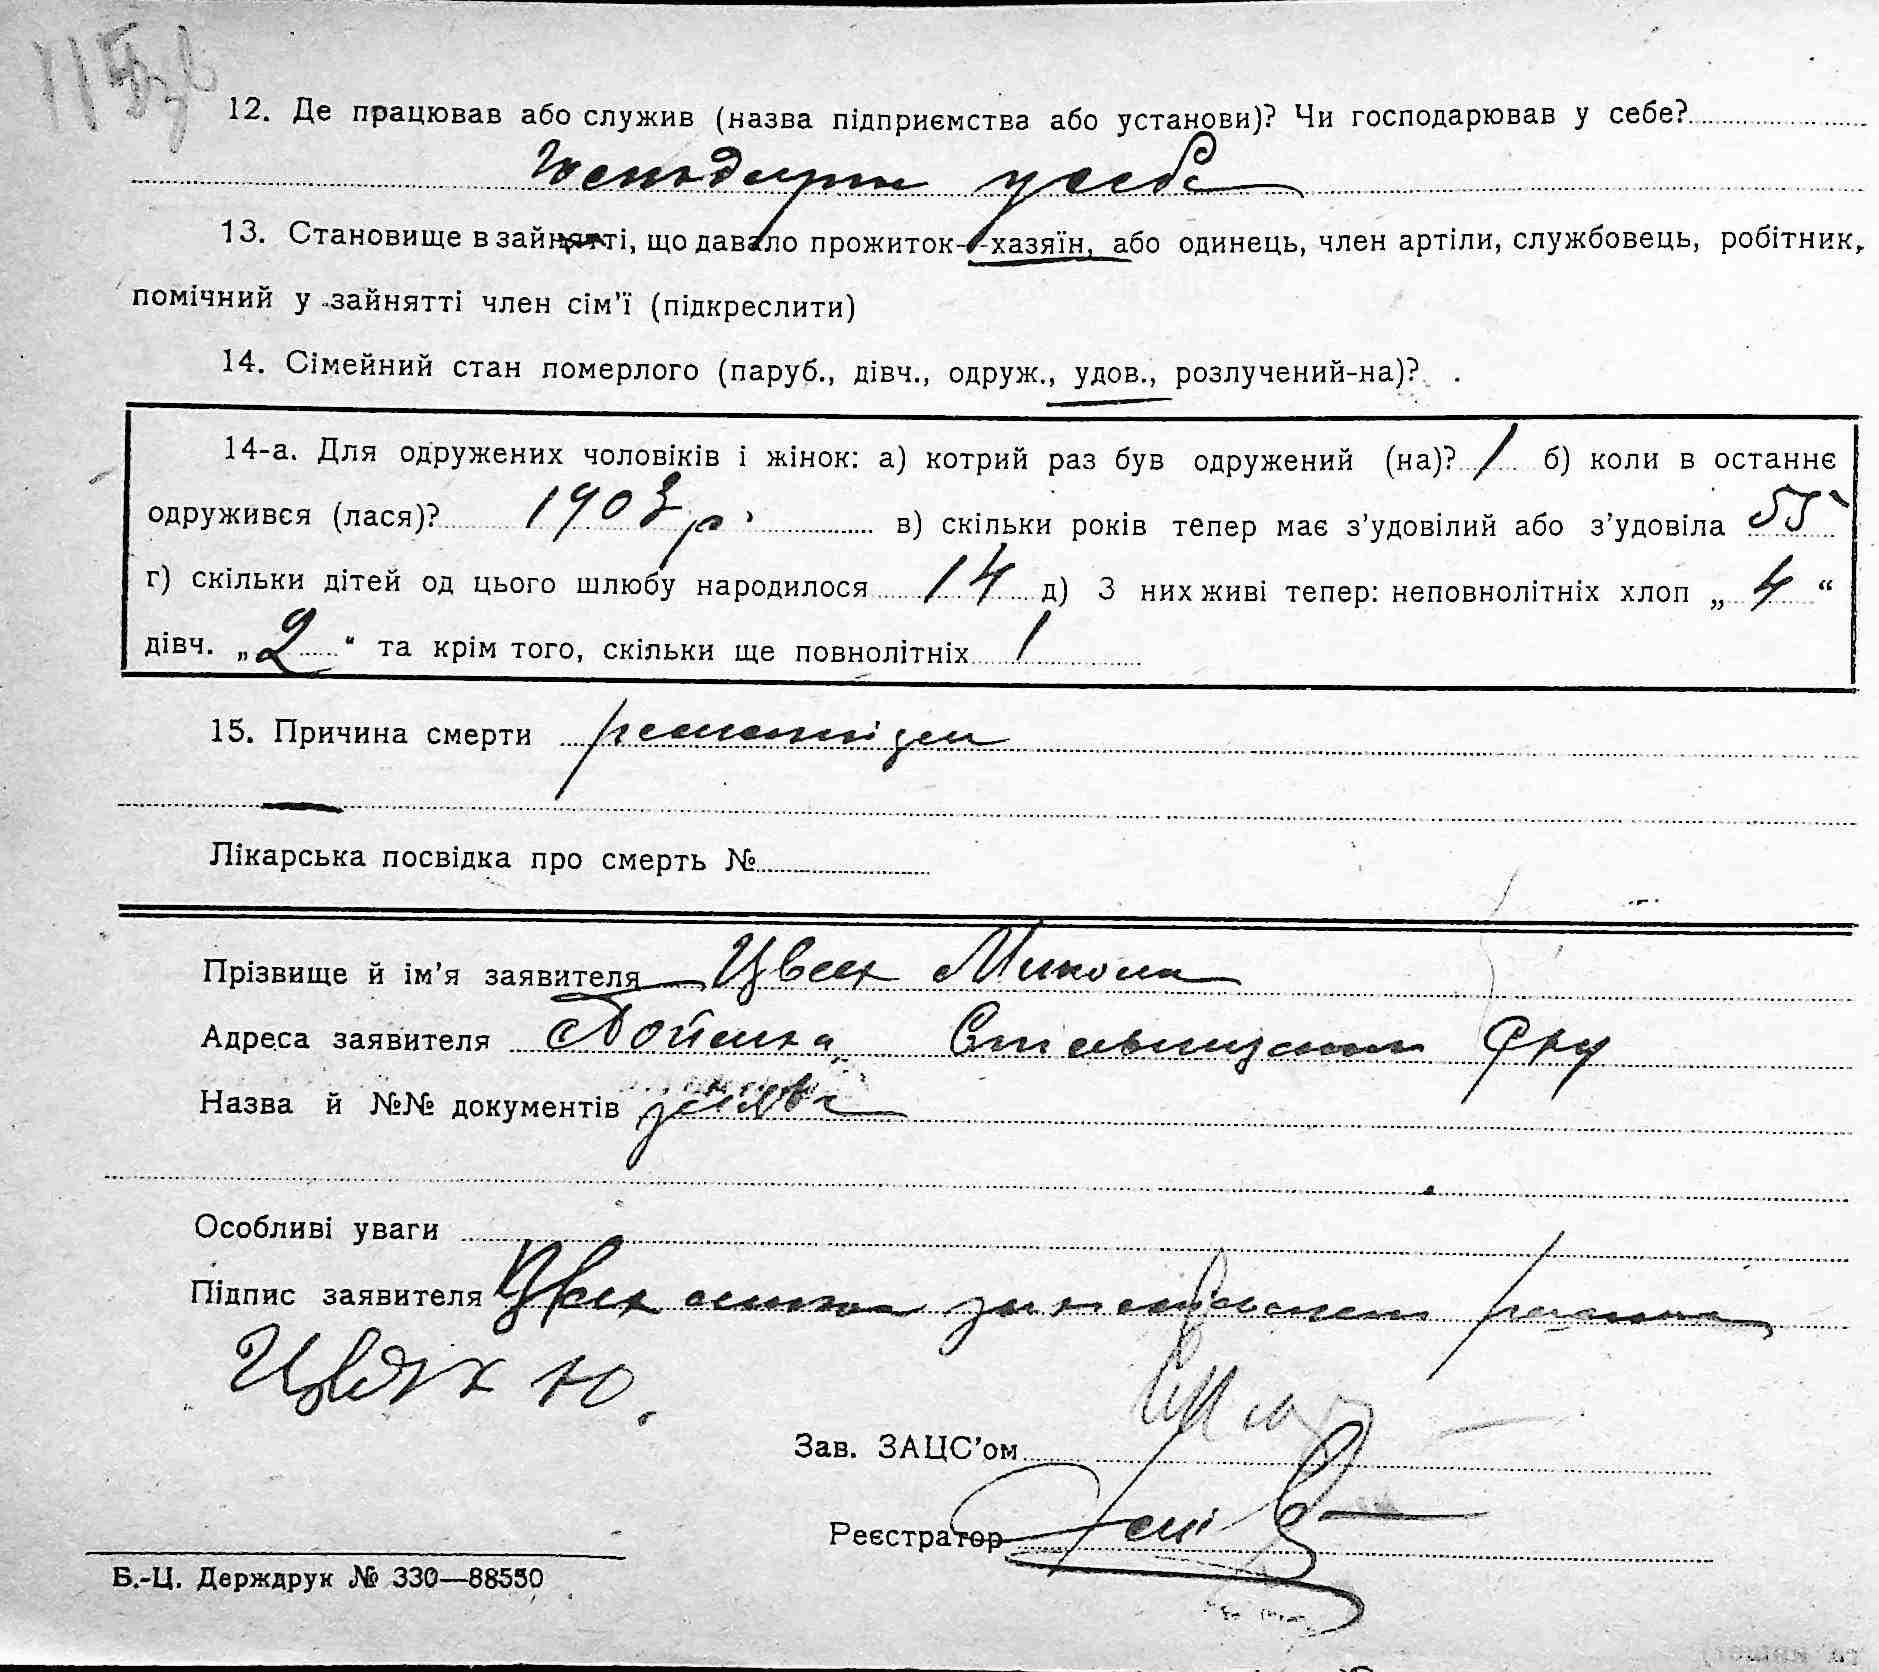 12. Де працював або служив (назва підприємства або установи)? Чи господарював у себе?
у себе
13. Становище в зайнятті, що давало прожиток—хазяїн, або одинець, член артіли, службовець, робітник,
помічний у зайнятті член сім'ї (підкреслити)
14. Сімейний стан померлого (паруб., дівч., одруж., удов., розлучений-на)?
14-а. Для одружених чоловіків і жінок: а) котрий раз був одружений (на)? 1 б) коли в останнє
одружився (лася)? 1903 р. в) скільки років тепер має з'удовілий або з'удовіла 55
г) скільки дітей од цього шлюбу народилося 14 д) З них живі тепер: неповнолітніх хлоп „ 4 “
дівч. „ 2 “ та крім того, скільки ще повнолітніх 1
15. Причина смерти ревматізм
Лікарська посвідка про смерть №
Прізвище й ім'я заявителя Цвях Микола
Адреса заявителя
Назва й №№ документів заява
Особливі уваги
Підпис заявителя Цвях
Цвях Ю.
Зав. ЗАЦС'ом
Реєстратор
Б.-Ц. Держдрук № 330—88550